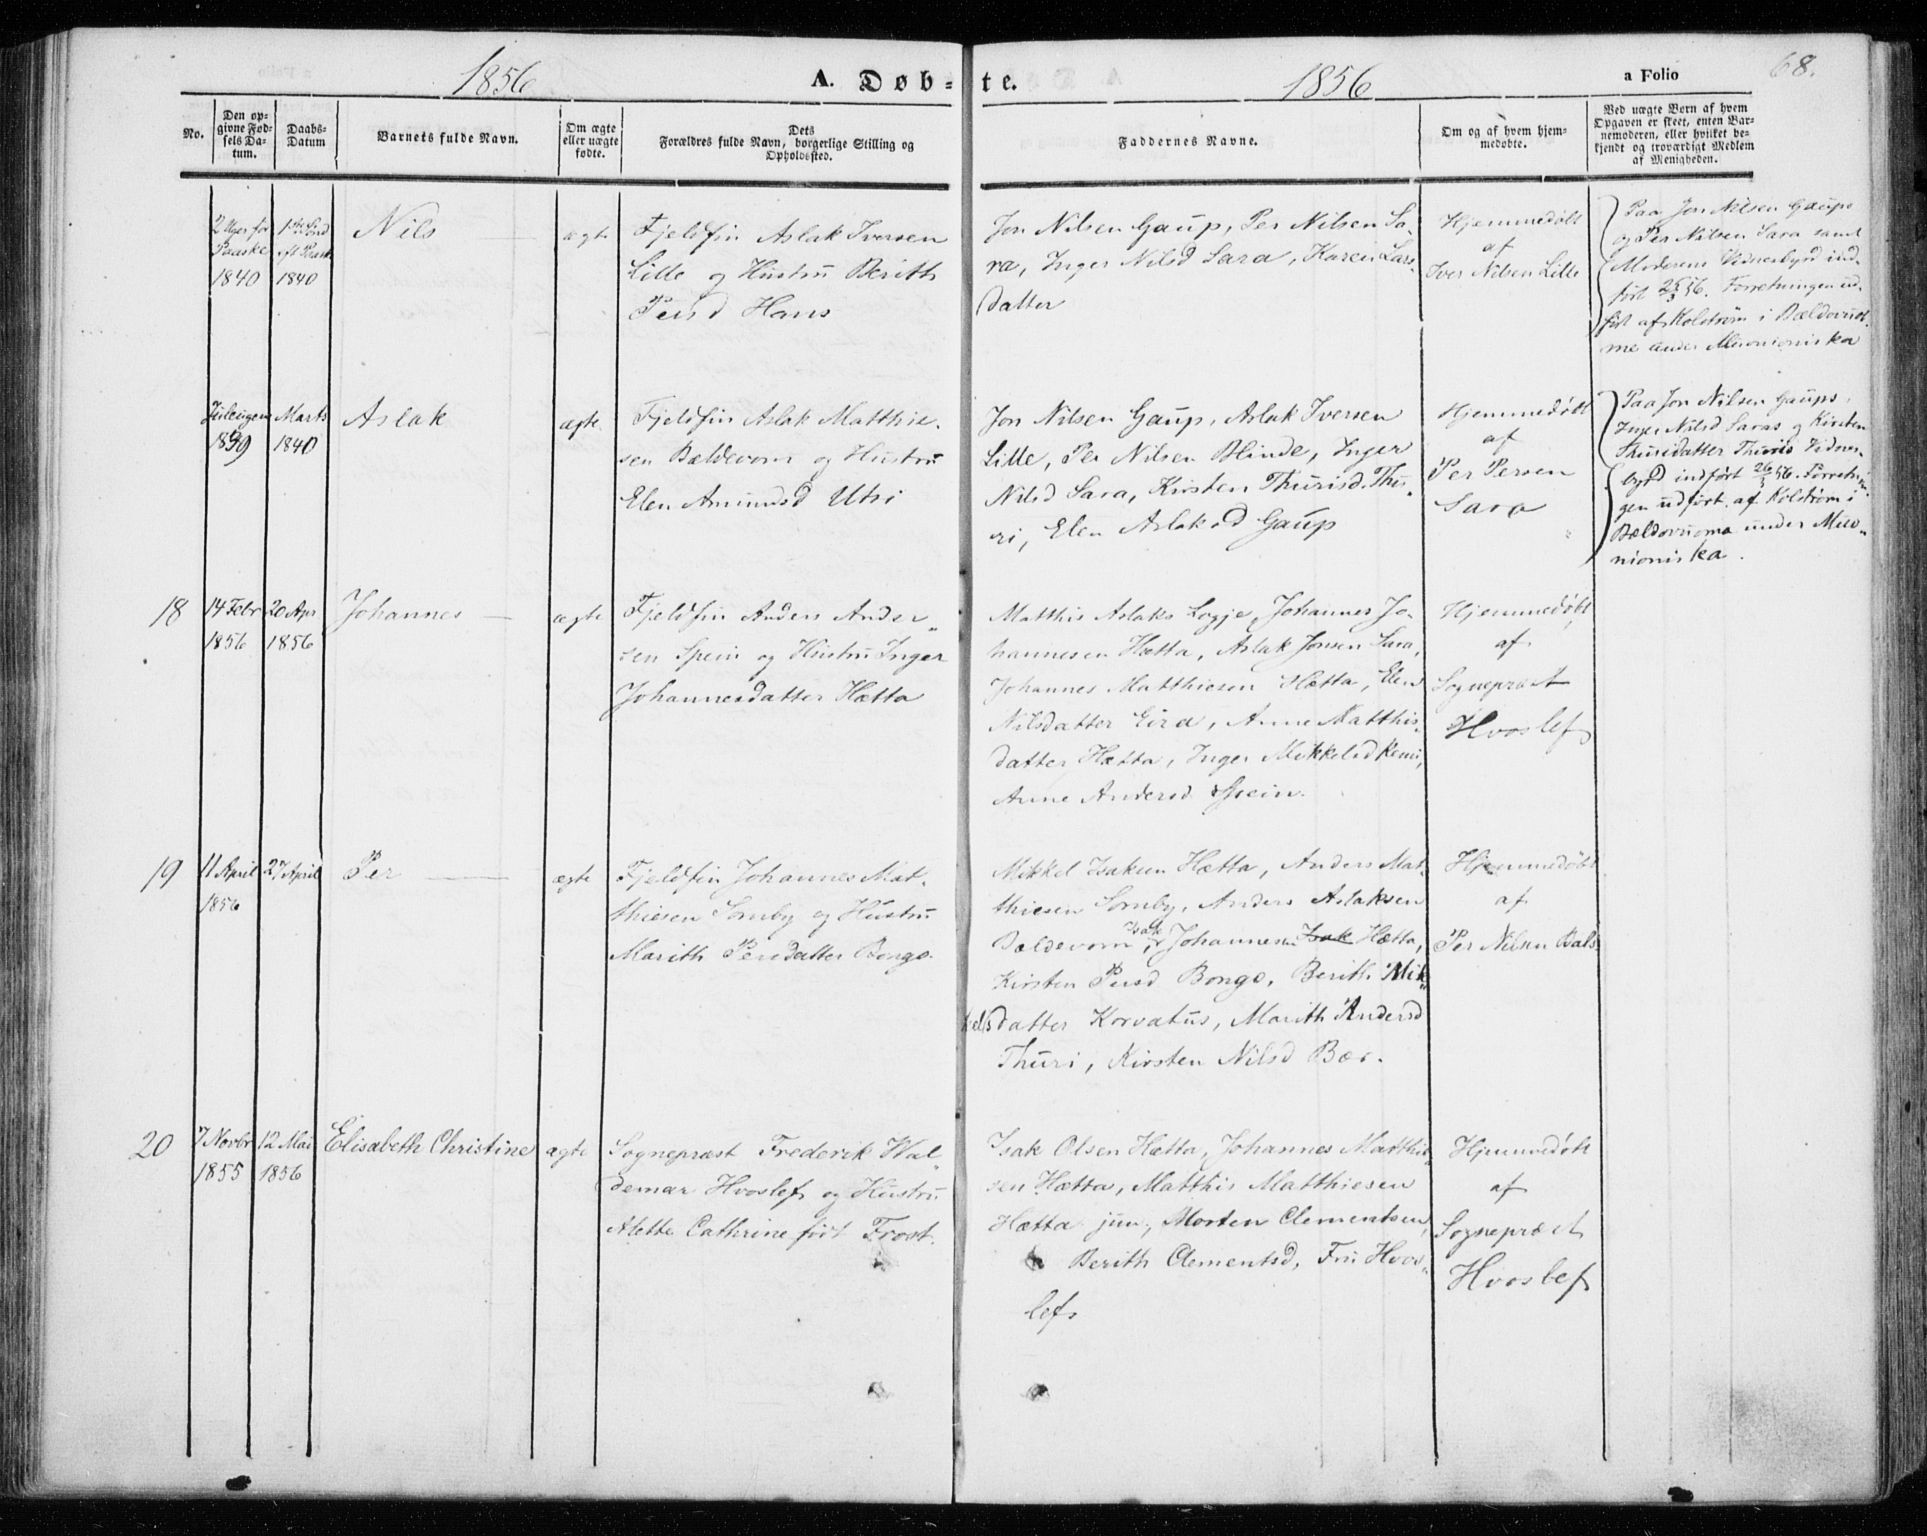 1856 A. Døb-te. 1856 a Folio 68.
No.
Den op-
givne Fød-
sels Da-
tum.
Daabs-
Datum
Barnets fulde Navn.
Om ægte
eller uægte
fødte.
Dets
Forældres fulde Navn, borgerlige Stilling og
Opholdssted.
Faddernes Navne.
Om og af hvem hjem-
medøbte.
Ved uægte Børn af hvem
Opgaven er skeet, enten Bar-
nemoderen, eller hvilket be-
kjendt og troværdigt Medlem
af Menigheden.
2 Uger før
Paaske
1840
1ste Sønd
eft Paask
1840
Nils
ægte
Fjeldfin Aslak Iversen
Lille og Hustru Berith
Persd Hans
Jon Nilsen Gaup, Per Nilsen Sa-
ra, Inger Nilsd Sara, Karen Lars-
datter
Hjemmedøbt
af
Iver Nilsen Lille
Paa Jon Nilsen Gaups
og Per Nilsen Sara samt
Moderens Vidnesbyrd ind-
ført 26/3 56. Forretningen ud-
ført af Kolstrøm i Bældovuo-
me under Muonioniska
Juleugen
1839
Marts
1840
Aslak
ægte
Fjeldfin Aslak Matthie-
sen Bældevom og Hustru
Elen Amundsd Utsi
Jon Nilsen Gaup, Aslak Iversen
Lille, Per Nilsen Blinde, Inger
Nilsd Sara, Kirsten Thurisd. Thu-
ri, Elen Aslaksd Gaup
Hjemmedøbt
af
Per Persen
Sara
Paa Jon Nilsen Gaups,
Inger Nilsd Saras og Kirsten
Thurisdatter Thuris Vidnes-
byrd indført 26/3 56. Forretnin-
gen udført af Kolstrøm i
Bældovuoma under Muo-
nioniska.
18
14 Febr
1856
20 Apr
1856
Johannes
ægte
Fjeldfin Anders Ander-
sen Spein og Hustru Inger
Johannesdatter Hætta
Matthis Aslaks Logje, Johannes Jo-
hannesen Hætta, Aslak Jonsen Sara,
Johannes Matthiesen Hætta, Elen
Nilsdatter Eira, Anne Matthis-
datter Hætta, Inger Mikkelsd Kemi,
Anne Andersd Spein.
Hjemmedøbt
af
Sognepræst
Hvoslef
19
11 April
1856
27 April
Per
ægte
Fjeldfin Johannes Mat-
thiesen Somby og Hustru
Marith Persdatter Bongo.
Mikkel Isaksen Hætta, Anders Mat-
thiesen Somby, Anders Aslaksen
Bældevom, Isak Johannesen Isak Hætta,
Kirsten Persd Bongo, Berith Mik-
kelsdatter Korvatus, Marith Andersd
Thuri, Kirsten Nilsd Bær.
Hjemmedøbt
af
Per Nilsen Bals
20
7 Novbr
1855
12 Mai
1856
Elisabeth Christine
ægte
Sognepræst Frederik Wal-
demar Hvoslef og Hustru
Alette Cathrine født Frost.
Isak Olsen Hætta, Johannes Matthie-
sen Hætta, Matthis Matthiesen
Hætta jun, Morten Clementsen,
Berith Clementsd, Fru Hvos-
lef
Hjemmedøbt
af
Sognepræst
Hvoslef